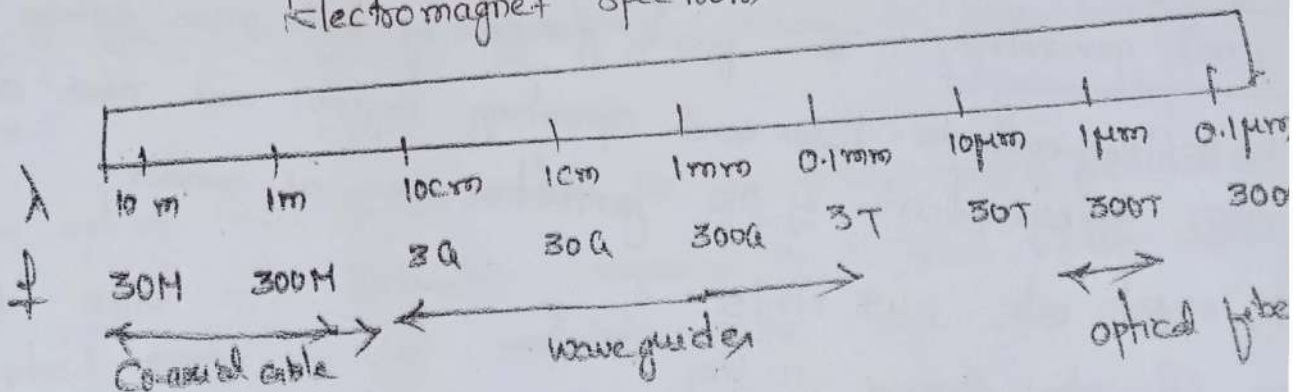 Electromagnet
λ 10 m 1m 10cm 1cm 1mm 0.1mm 10μm 1μm 0.1μm
f 30M 300M 3G 30G 300G 3T 30T 300T 300
Co-axial cable waveguides optical fibe